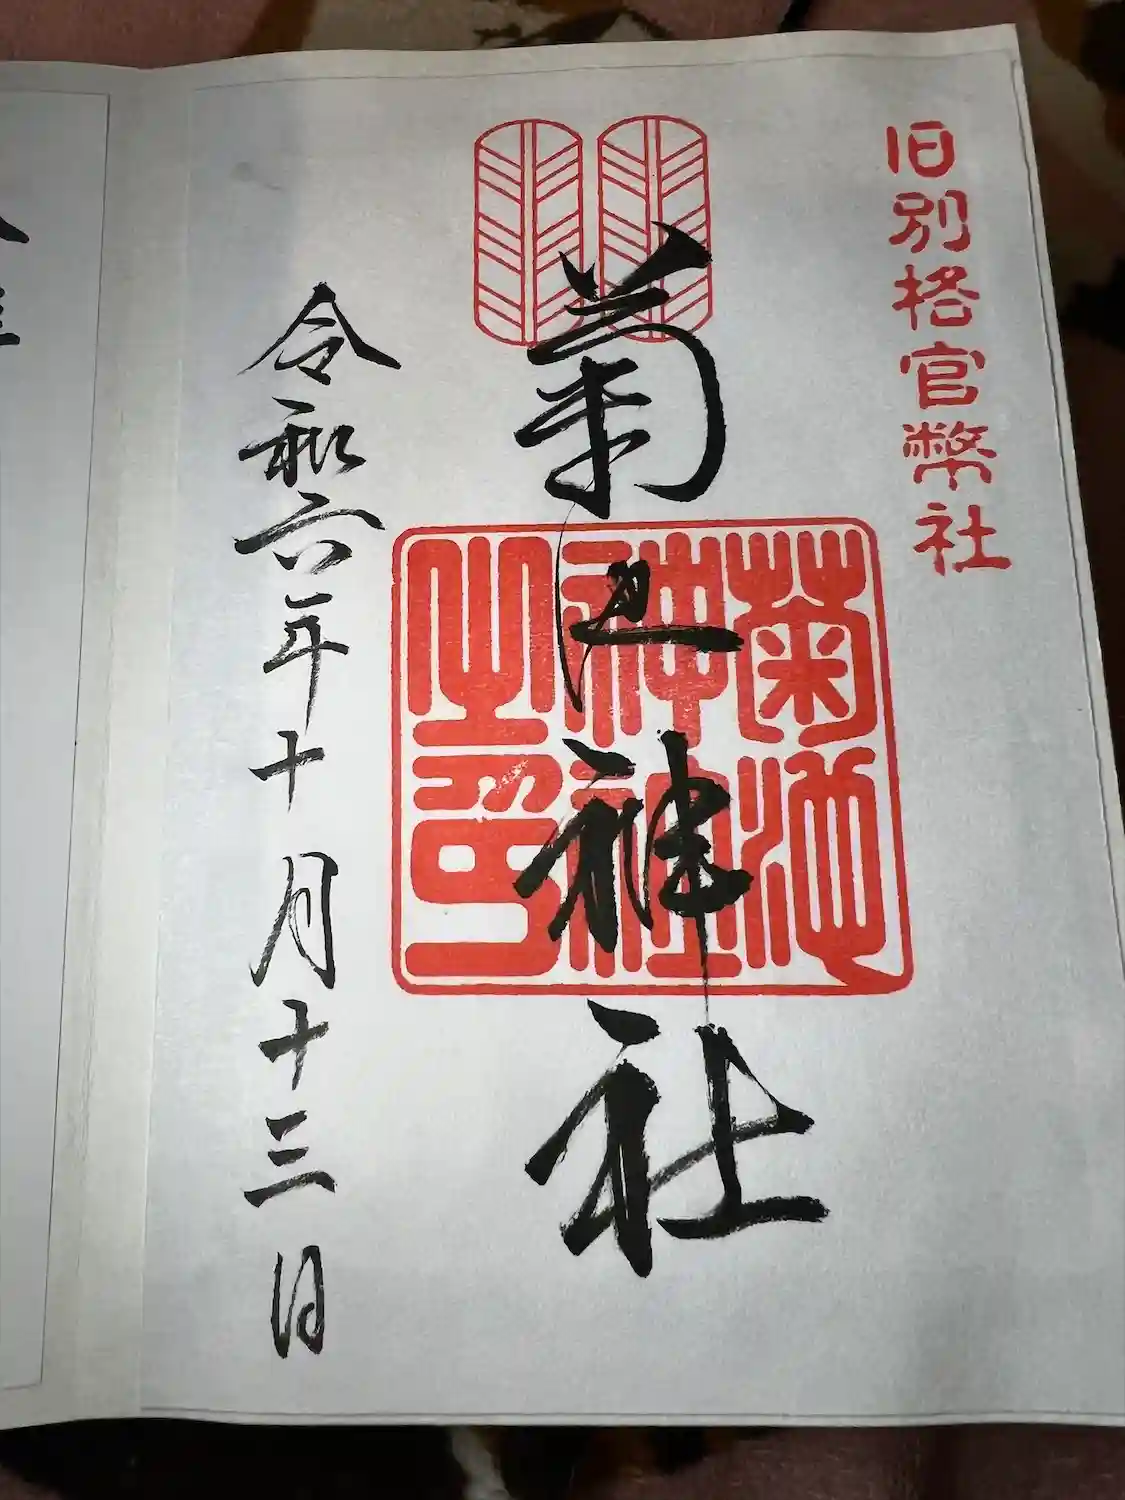 旧別格官幣社
菊池神社
菊池神社之印
令和六年十月十三日